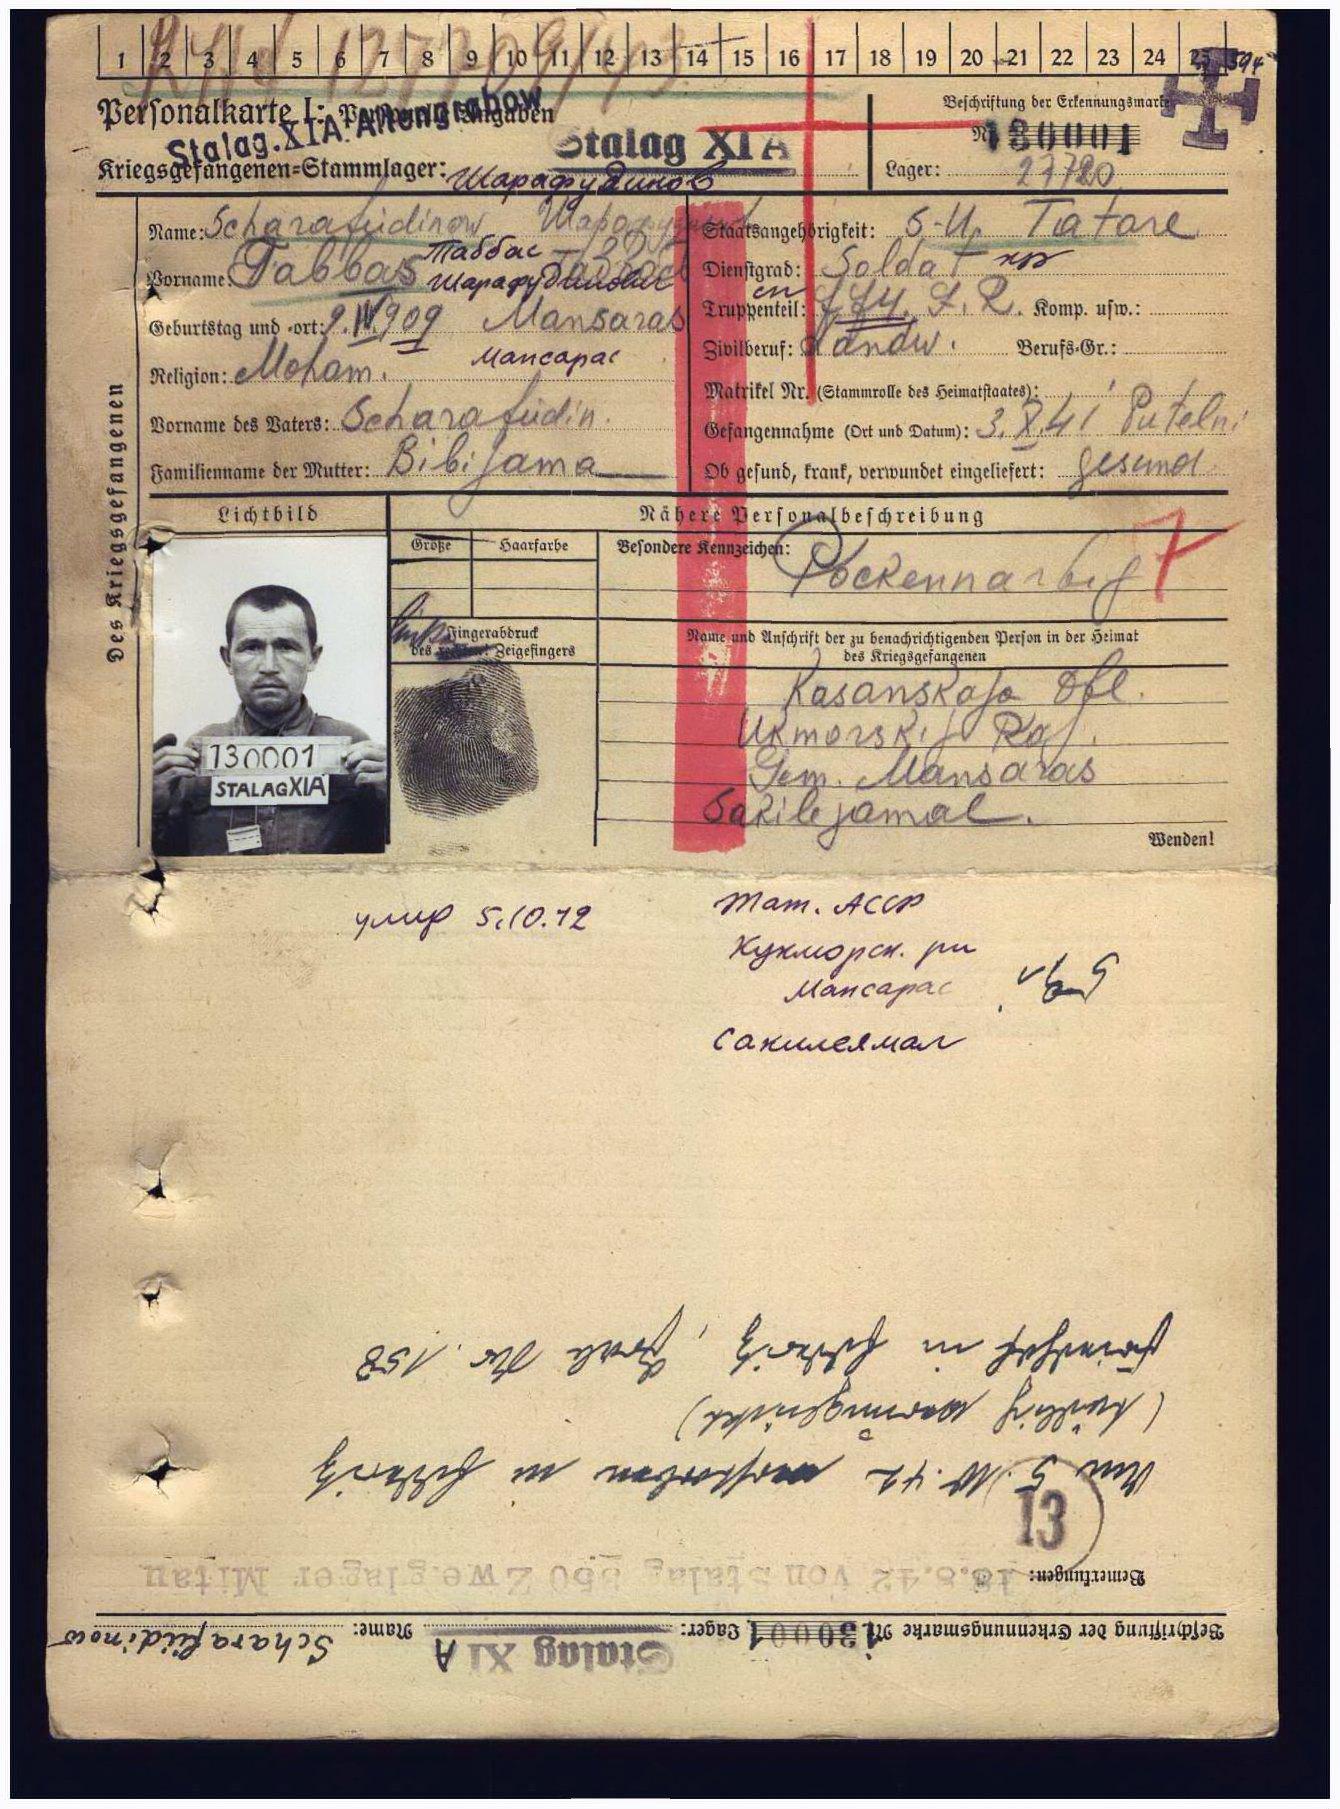 1 2 3 4 5 6 7 8 9 10 11 12 13 14 15 16 17 18 19 20 21 22 23 24 25
Personalkarte I: Personelle Angaben
Stalag.XIA Altengrabow
Kriegsgefangenen=Stammlager: Stalag XI A
Шарафудинов
Beschriftung der Erkennungsmarke
Nr. 130001
Lager: 27720
Des Kriegsgefangenen
Name: Scharafüdinow
Vorname: Tabbas Таббас
Шарафудинович
Geburtstag und =ort: 9.IV.909 Mansaras
Мансарас
Religion: Moham.
Vorname des Vaters: Scharafüdin.
Familienname der Mutter: Bibijama
Staatsangehörigkeit: S-U. Tatare
Dienstgrad: Soldat кр
Truppenteil: сп J.R. Komp. usw.:
Zivilberuf: Landw. Berufs=Gr.:
Matrikel Nr. (Stammrolle des Heimatstaates):
Gefangennahme (Ort und Datum): 3.X.41 Putelni
Ob gesund, krank, verwundet eingeliefert: gesund
Lichtbild
Nähere Personalbeschreibung
Größe Haarfarbe
Besondere Kennzeichen: Pockennarbig
7
Fingerabdruck
des rechten! Zeigefingers
links
130001
STALAG XIA
Name und Anschrift der zu benachrichtigenden Person in der Heimat
des Kriegsgefangenen
Kasanskaja Obl.
Ukmorskij Raj.
Gem. Mansaras
Sakilejamal.
Wenden!
умер 5.10.42
Тат. АССР
Кукморск. рн
Мансарас
Сакилеямал
Beschriftung der Erkennungsmarke Nr. 130001 Lager: Stalag XI A Name: Scharafüdinow
Bemerkungen: 18.8.42 von Stalag 350 Zweiglager Mitau
13
Am 5.10.42 verstorben in
in Grab Nr. 158